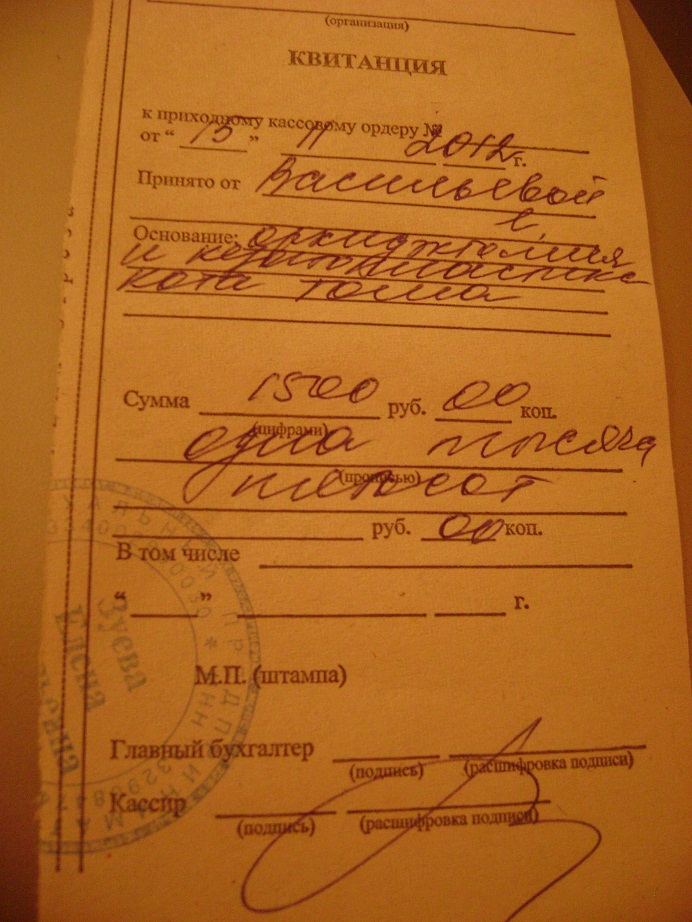 (организация)
КВИТАНЦИЯ
к приходному кассовому ордеру №
от “ 15 ” 11 2012 г.
Принято от Васильевой
Е.
Основание: орхиджтомия
и кератопластика
кота Тома
Сумма 1500 руб. 00 коп.
(цифрами)
одна тысяча
(прописью)
пятьсот
руб. 00 коп.
В том числе
“ ” г.
М.П. (штампа)
Главный бухгалтер
(подпись) (расшифровка подписи)
Кассир
(подпись) (расшифровка подписи)
Зуева
Елена